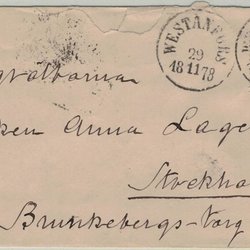 WESTANFORS
29
18 11 78
Grefvarna
ken Anna Lage
Stockho
Brunkebergs-Torg